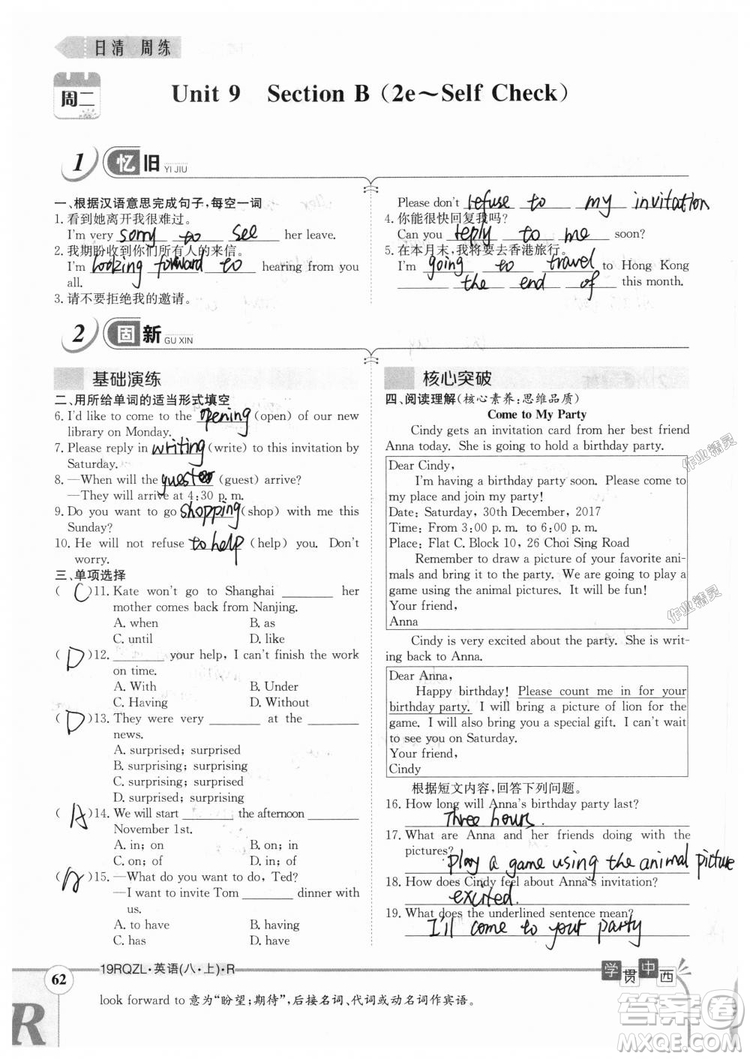 日清 周练
周二
Unit 9 Section B（2e～Self Check）
1 忆旧 YI JIU
一、根据汉语意思完成句子，每空一词
1. 看到她离开我很难过。
I'm very sorry to see her leave.
2. 我期盼收到你们所有人的来信。
I'm looking forward to hearing from you
all.
3. 请不要拒绝我的邀请。
Please don't refuse to my invitation
4. 你能很快回复我吗？
Can you reply to me soon?
5. 在本月末，我将要去香港旅行。
I'm going to travel to Hong Kong
the end of this month.
2 固新 GU XIN
基础演练
二、用所给单词的适当形式填空
6. I'd like to come to the opening (open) of our new
library on Monday.
7. Please reply in writing (write) to this invitation by
Saturday.
8. —When will the guester (guest) arrive?
—They will arrive at 4:30 p. m.
9. Do you want to go shopping (shop) with me this
Sunday?
10. He will not refuse to help (help) you. Don't
worry.
三、单项选择
( C )11. Kate won't go to Shanghai ________ her
mother comes back from Nanjing.
A. when B. as
C. until D. like
( D )12. ________ your help, I can't finish the work
on time.
A. With B. Under
C. Having D. Without
( D )13. They were very ________ at the ________
news.
A. surprised; surprised
B. surprising; surprising
C. surprising; surprised
D. surprised; surprising
( A )14. We will start ________ the afternoon ________
November 1st.
A. in; on B. on; on
C. on; of D. in; of
( A )15. —What do you want to do, Ted?
—I want to invite Tom ________ dinner with
us.
A. to have B. having
C. has D. have
核心突破
四、阅读理解（核心素养：思维品质）
Come to My Party
Cindy gets an invitation card from her best friend
Anna today. She is going to hold a birthday party.
Dear Cindy,
I'm having a birthday party soon. Please
come and join my party!
Date: Saturday, 30th December, 2017
Time: From 3:00 p. m. to 6:00 p. m.
Place: Flat C. Block 10, 26 Choi Sing Road
Remember to draw a picture of your favorite ani-
mals and bring to the party. We are going to play a
game using the animal pictures.
Your friend,
Anna
Cindy is very excited about the party. She is writ-
ing back to Anna.
Dear Anna,
Happy birthday! Please count me in for your
birthday party. I will draw a picture of lion for the
game. I will also bring you a special gift. I can't wait
to see you on Saturday.
Your friend,
Cindy
根据短文内容，回答下列问题。
16. How long will Anna's birthday party last?
Three hours.
17. What are Anna and her friends doing with the
pictures?
play a game using the animal picture
18. How does Cindy feel about Anna's invitation?
excited.
19. What does the underlined sentence mean?
I'll come to your party
62 19RQZL·英语(八·上)·R
学贯中西
look forward to 意为“盼望；期待”，后接名词、代词或动名词作宾语。
R
作业精灵
作业精灵
答案圈
MXQE.COM